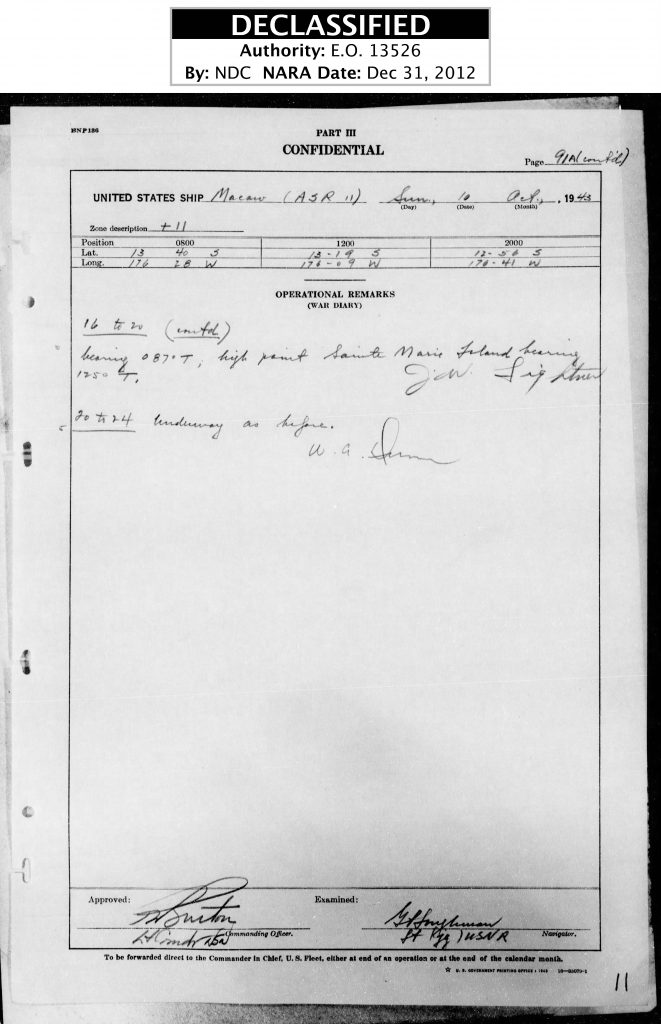 DECLASSIFIED
Authority: E.O. 13526
By: NDC NARA Date: Dec 31, 2012
BNP136
PART III
CONFIDENTIAL
Page 91A (contd)
UNITED STATES SHIP Macaw (ASR 11) Sun, 10 Oct., , 1943
(Day) (Date) (Month)
Zone description +11
Position 0800 1200 2000
Lat. 13 40 S 13-19 S 12-56 S
Long. 176 28 W 176-09 W 176-41 W
OPERATIONAL REMARKS
(WAR DIARY)
16 to 20 (contd)
bearing 087° T, high point Sainte Marie Island bearing
125° T.
J.W. Lightner
20 to 24 Underway as before.
W. A.
Approved: Examined:
Burton
Lt Comdr USN Commanding Officer.
Lt (jg) USNR Navigator.
To be forwarded direct to the Commander in Chief, U. S. Fleet, either at end of an operation or at the end of the calendar month.
☆ U. S. GOVERNMENT PRINTING OFFICE : 1943
11